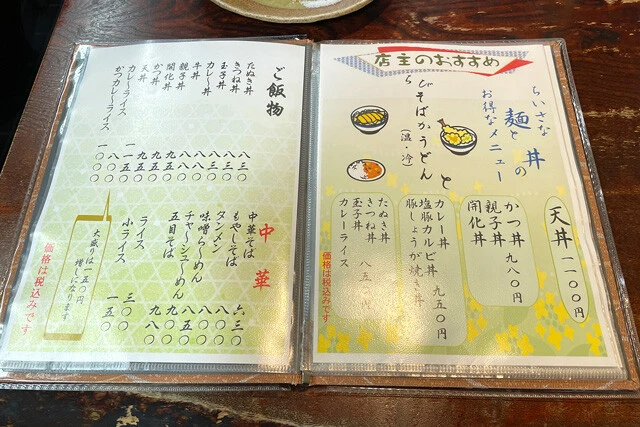 店主のおすすめ
ちいさな
麺と
の丼
お得なメニュー
そばかうどんと
(温・冷)
天丼 一一〇〇円
かつ丼
親子丼 九八〇円
開化丼
カレー丼
塩豚カルビ丼 九五〇円
豚しょうが焼き丼
たぬき丼
きつね丼 八五 円
玉子丼
カレーライス
価格は税込みです
ご飯物
たぬき丼 八三〇
きつね丼 八三〇
玉子丼 八三〇
カレー丼
牛丼
親子丼
開化丼
かつ丼 九五〇
天丼 一一五〇
カレーライス
かつカレーライス
中華
中華そば 六三〇
もやしそば
タンメン
味噌らーめん
チャーシューめん
五目そば 九八〇
ライス 三〇〇
小ライス 一五〇
大盛りは一五〇円
増しになります
価格は税込みです